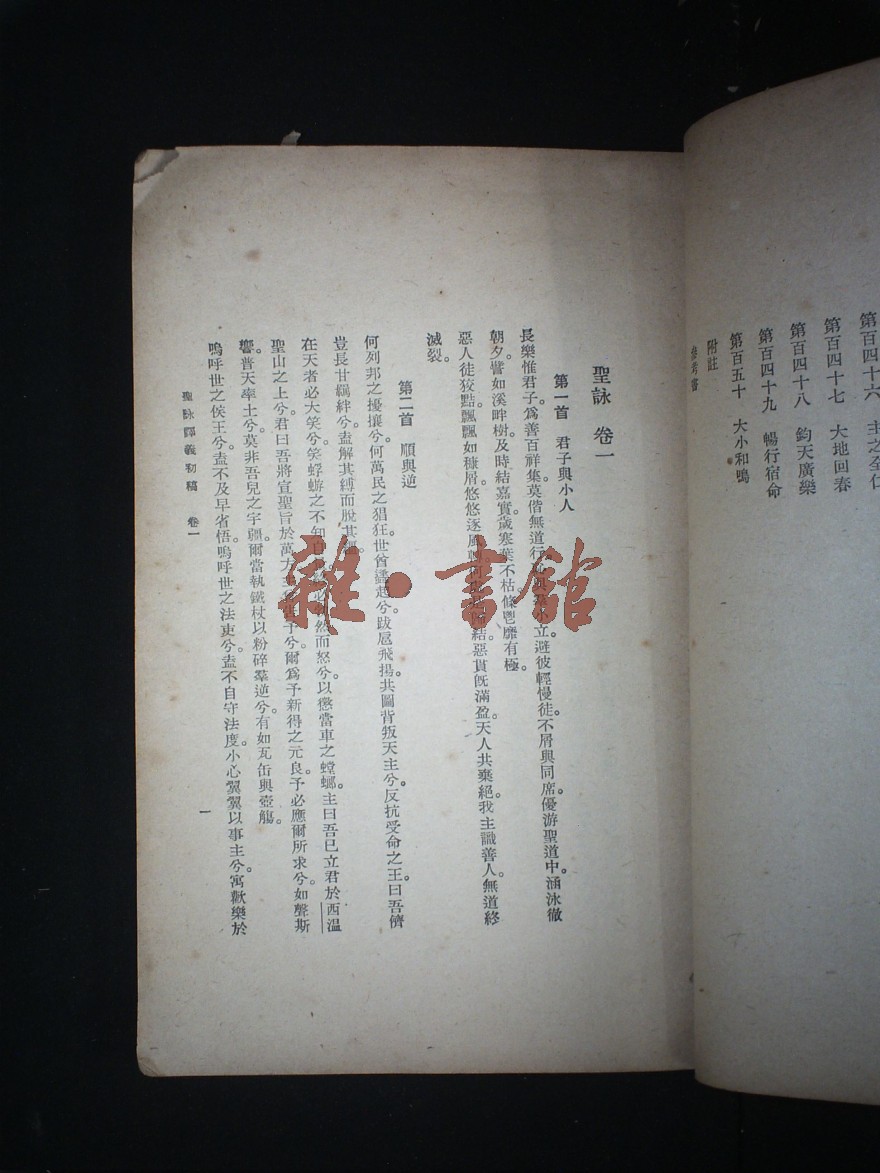 第百四十六 主之全仁
第百四十七 大地回春
第百四十八 鈞天廣樂
第百四十九 暢行宿命
第百五十 大小和鳴
附註
參考書
聖詠 卷一
第一首 君子與小人
長樂惟君子。爲善百祥集。莫偕無道行。與小立。避彼輕慢徒。不屑與同席。優游聖道中。涵泳徹
朝夕。譬如溪畔樹。及時結嘉實。歲寒葉不枯。條鬯靡有極。
惡人徒狡黠。飄飄如糠屑。悠悠逐風轉。何結。惡貫既滿盈。天人共棄絕。我主識善人。無道終
滅裂。
第二首 順與逆
何列邦之擾攘兮。何萬民之猖狂。世酋蠭起兮。跋扈飛揚。共圖背叛天主兮。反抗受命之王。曰吾儕
豈長甘羈絆兮。盍解其縛而脫其韁。
在天者必大笑兮。笑蜉蝣之不知自。必然而怒兮。以懲當車之螳螂。主曰吾已立君於西溫
聖山之上兮。君曰吾將宣聖旨於萬方。主告予兮。爾爲予新得之元良。予必應爾所求兮。如聲斯
響。普天率土兮。莫非吾兒之宇疆。爾當執鐵杖以粉碎羣逆兮。有如瓦缶與壺觴。
嗚呼世之侯王兮。盍不及早省悟。嗚呼世之法吏兮。盍不自守法度。小心翼翼以事主兮。寓歡樂於
聖詠譯義初稿 卷一
一
雜·書館